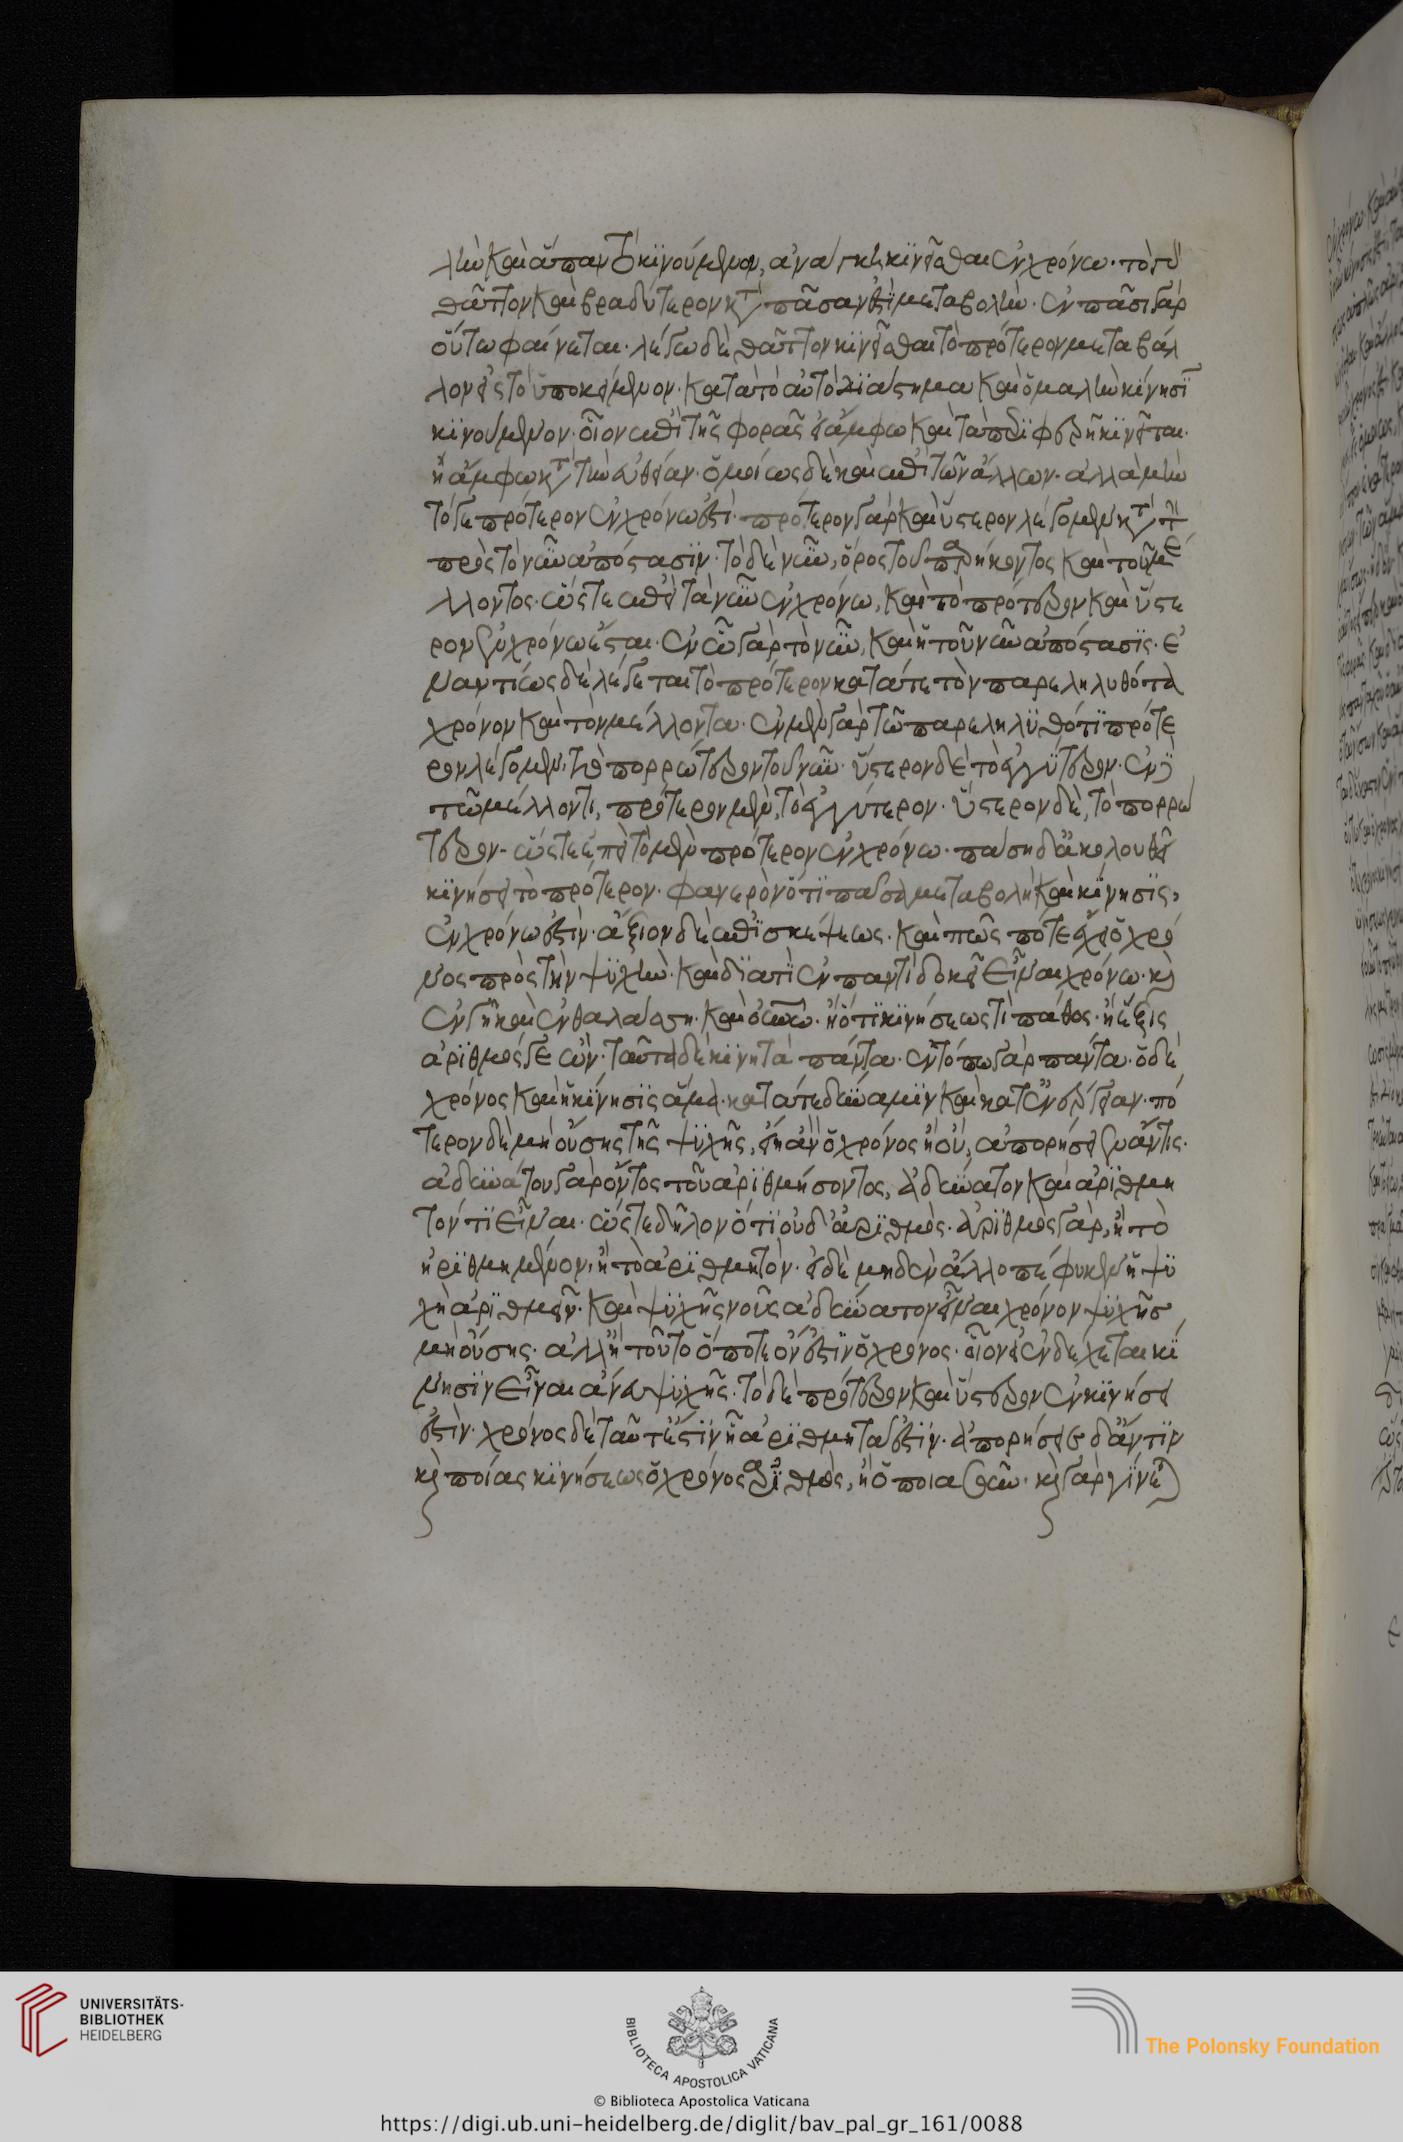 λὴν καὶ ἅπαν τὸ κινούμενον, ἀνάγκη κινεῖσθαι ἐν χρόνω· τὸ γὰρ
θᾶττον καὶ βραδύτερον κατὰ πᾶσαν ἐστὶ μεταβολὴν· ἐν πᾶσι γὰρ
οὕτω φαίνεται· λέγω δὲ θᾶττον κινεῖσθαι τὸ πρότερον μεταβάλ
λον εἰς τὸ ὑποκείμενον· κατὰ τὸ αὐτὸ διάστημα καὶ ὁμαλὴν κίνησιν
κινούμενον· οἷον ἐπὶ τῆς φορᾶς εἰ ἄμφω κατὰ τὴν περιφερῆ κινεῖται·
ἢ ἄμφω κατὰ τὴν εὐθεῖαν· ὁμοίως δὲ καὶ ἐπὶ τῶν ἄλλων· ἀλλὰ μὴν
τό γε πρότερον ἐν χρόνω ἐστί· πρότερον γὰρ καὶ ὕστερον λέγομεν κατὰ τὴν
πρὸς τὸ νῦν ἀπόστασιν· τὸ δὲ νῦν, ὅρος τοῦ παρήκοντος καὶ τοῦ με
λλοντος· ὥστε ἐπεὶ τὰ νῦν ἐν χρόνω, καὶ τὸ πρότερον καὶ ὕστε
ρον ἐν χρόνω ἔσται· ἐν ὧ γὰρ τὸ νῦν, καὶ ἡ τοῦ νῦν ἀπόστασις· ἐ
ναντίως δὲ λέγεται τὸ πρότερον κατά τε τὸν παρεληλυθότα
χρόνον καὶ τὸν μέλλοντα· ἐν μὲν γὰρ τῶ παρεληλυθότι πρότε
ρον λέγομεν, τὸ πορρώτερον τοῦ νῦν· ὕστερον δὲ τὸ ἐγγύτερον· ἐν δὲ
τῶ μέλλοντι, πρότερον μὲν, τὸ ἐγγύτερον· ὕστερον δὲ, τὸ πορρώ
τερον· ὥστε ἐπεὶ τὸ μὲν πρότερον ἐν χρόνω· πάση δ' ἀκολουθεῖ
κινήσει τὸ πρότερον· φανερὸν ὅτι πᾶσα μεταβολὴ καὶ κίνησις,
ἐν χρόνω ἐστίν· ἄξιον δὲ ἐπισκέψεως· καὶ πῶς πότε ἔχει ὁ χρό
νος πρὸς τὴν ψυχὴν· καὶ διατί ἐν παντὶ δοκεῖ εἶναι χρόνω· καὶ
ἐν γῆ καὶ ἐν θαλάσση· καὶ οὐρανῶ· ἢ ὅτι κινήσεως τὶ πάθος· ἢ ἕξις
ἀριθμός γε ὢν· ταῦτα δὲ κινητὰ πάντα· ἐν τόπω γὰρ πάντα· ὁ δὲ
χρόνος καὶ ἡ κίνησις ἅμα· κατά τε δύναμιν καὶ κατ' ἐνέργειαν· πό
τερον δὲ μὴ οὔσης τῆς ψυχῆς, εἴη ἂν ὁ χρόνος ἢ οὐ, ἀπορήσειεν ἄν τις·
ἀδυνάτου γὰρ ὄντος τοῦ ἀριθμήσοντος, ἀδύνατον καὶ ἀριθμη
τόν τι εἶναι· ὥστε δῆλον ὅτι οὐδ' ἀριθμὸς· ἀριθμὸς γὰρ, ἢ τὸ
ἠριθμημένον, ἢ τὸ ἀριθμητόν· εἰ δὲ μηδὲν ἄλλο πέφυκεν ἢ ψυ
χὴ ἀριθμεῖν· καὶ ψυχῆς νοῦς ἀδύνατον εἶναι χρόνον ψυχῆς
μὴ οὔσης· ἀλλ' ἢ τοῦτο ὅ ποτε ὄν ἐστιν ὁ χρόνος· οἷον εἰ ἐνδέχεται κί
νησιν εἶναι ἄνευ ψυχῆς· τὸ δὲ πρότερον καὶ ὕστερον ἐν κινήσει
ἐστίν· χρόνος δὲ ταῦτ' ἔστιν ἧ ἀριθμητὰ ἐστίν· ἀπορήσειε δ' ἄν τις
καὶ ποίας κινήσεως ὁ χρόνος ἀριθμὸς, ἢ ὁποιασοῦν· καὶ γὰρ γίνεται
UNIVERSITÄTS-
BIBLIOTHEK
HEIDELBERG
BIBLIOTECA APOSTOLICA VATICANA
The Polonsky Foundation
© Biblioteca Apostolica Vaticana
https://digi.ub.uni-heidelberg.de/diglit/bav_pal_gr_161/0088